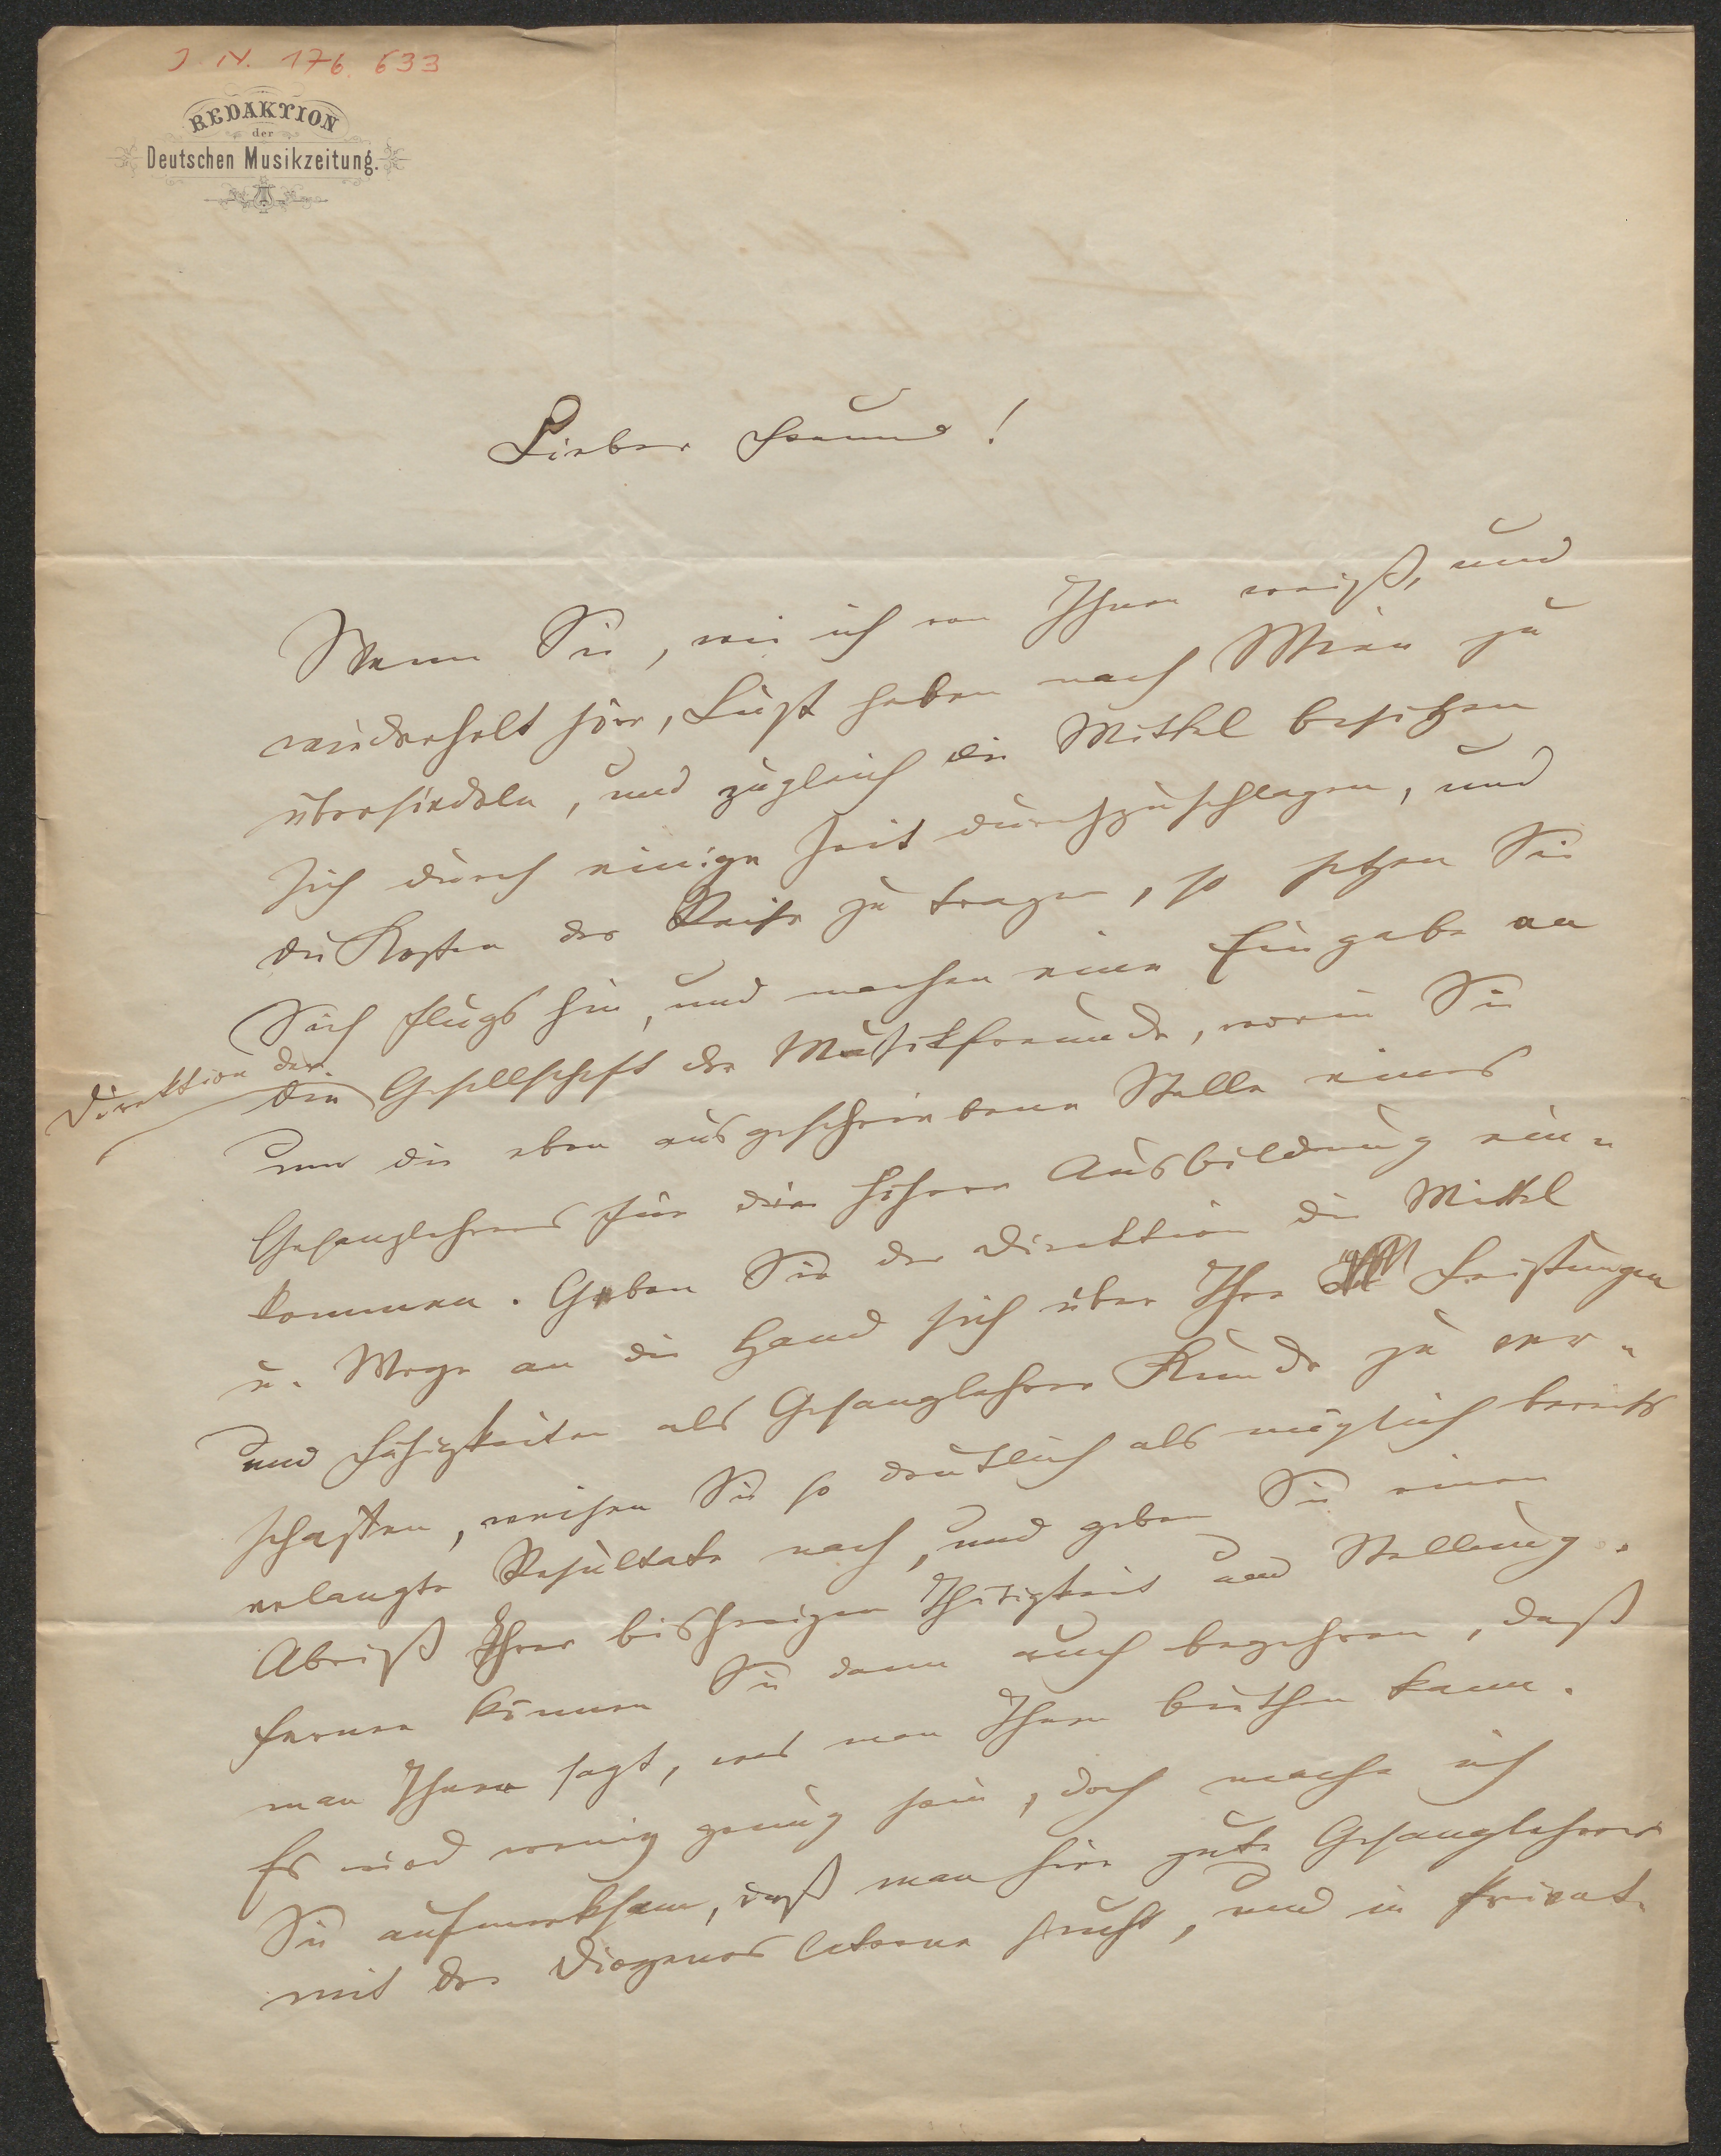 J. N. 176.633
REDAKTION
der
Deutschen Musikzeitung.
Lieber Freund!
Wenn Sie, wie ich von Ihnen weiß, und
wiederholt höre, Lust haben nach Wien zu
übersiedeln, und zugleich die Mittel besitzen
sich durch einige Zeit durchzuschlagen, und
die Kosten der Reise zu tragen, so setzen Sie
Sich flugs hin, und machen eine Eingabe an
Direktion der
die Gesellschaft der Musikfreunde, worin Sie
um die eben ausgeschriebene Stelle eines
Gesanglehrers für die höhere Ausbildung ein-
kommen. Geben Sie der Direktion die Mittel
u. Wege an die Hand sich über Ihre Leistungen
und Fähigkeiten als Gesanglehrer Kunde zu ver-
schaffen, weisen Sie so deutlich als möglich bereits
erlangte Resultate nach, und geben Sie einen
Abriß Ihrer bisherigen Thätigkeit und Stellung.
Ferner können Sie dann auch begehren, daß
man Ihnen sagt, was man Ihnen biethen kann.
Es wird wenig genug sein, doch mache ich
Sie aufmerksam, daß man hier gute Gesanglehrer
mit der Diogenes laterne sucht, und in Privat-